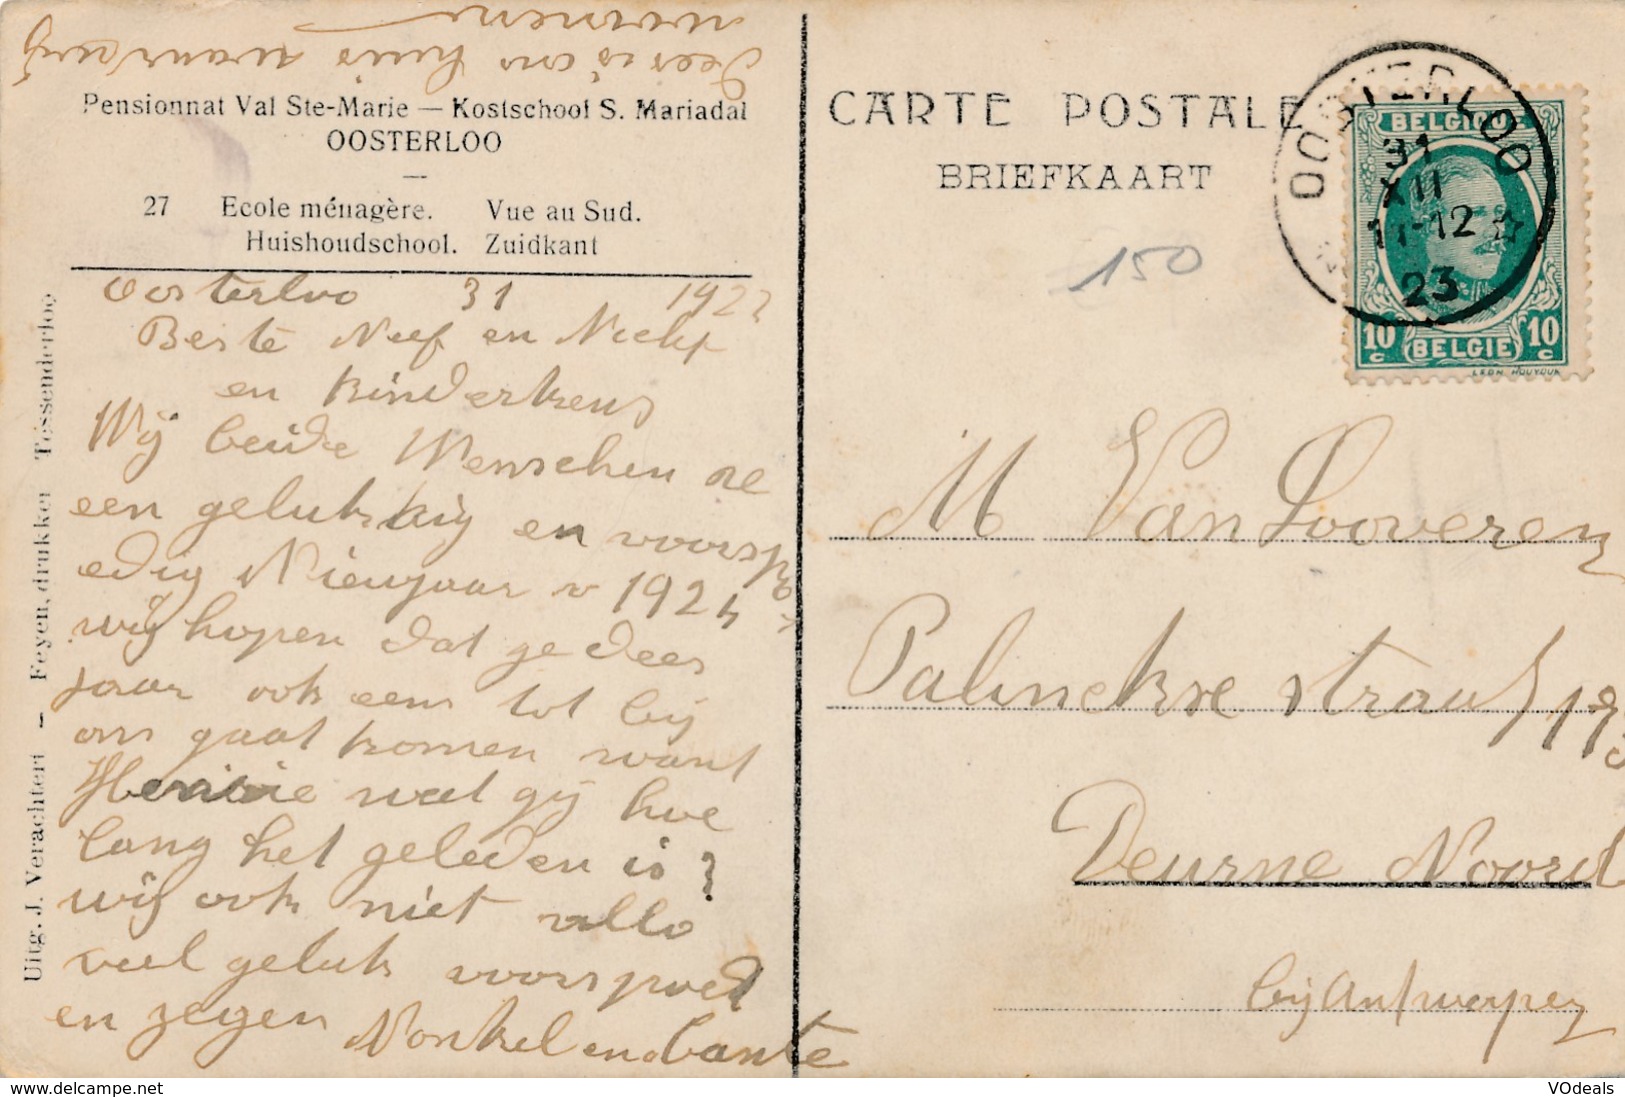 Deer is ons huis waar wij
wonen
Pensionnat Val Ste-Marie — Kostschool S. Mariadal
OOSTERLOO
27 Ecole ménagère. Vue au Sud.
Huishoudschool. Zuidkant
Oosterloo 31 1923
Beste Neef en Nicht
en kinderkens
Wij beide Wenschen
een gelukkig en voorspo
edig Nieuwjaar v 1924
wij hopen dat ge dees
jaar ook eens tot bij
ons gaat komen want
wat gij hoe
lang het geleden is?
wij ook niet allo
veel geluk voorspoed
en zegen Nonkel en tante
Uitg. J. Verachtert — Feyen, drukker Tessenderloo
CARTE POSTALE
BRIEFKAART
150
OOSTERLOO
31
XII
11-12
23
BELGIQUE
10 c BELGIE 10 c
LEON HOUYOUX
M Van Looveren
Palinckse straat
Deurne Noord
bij Antwerpen
VOdeals